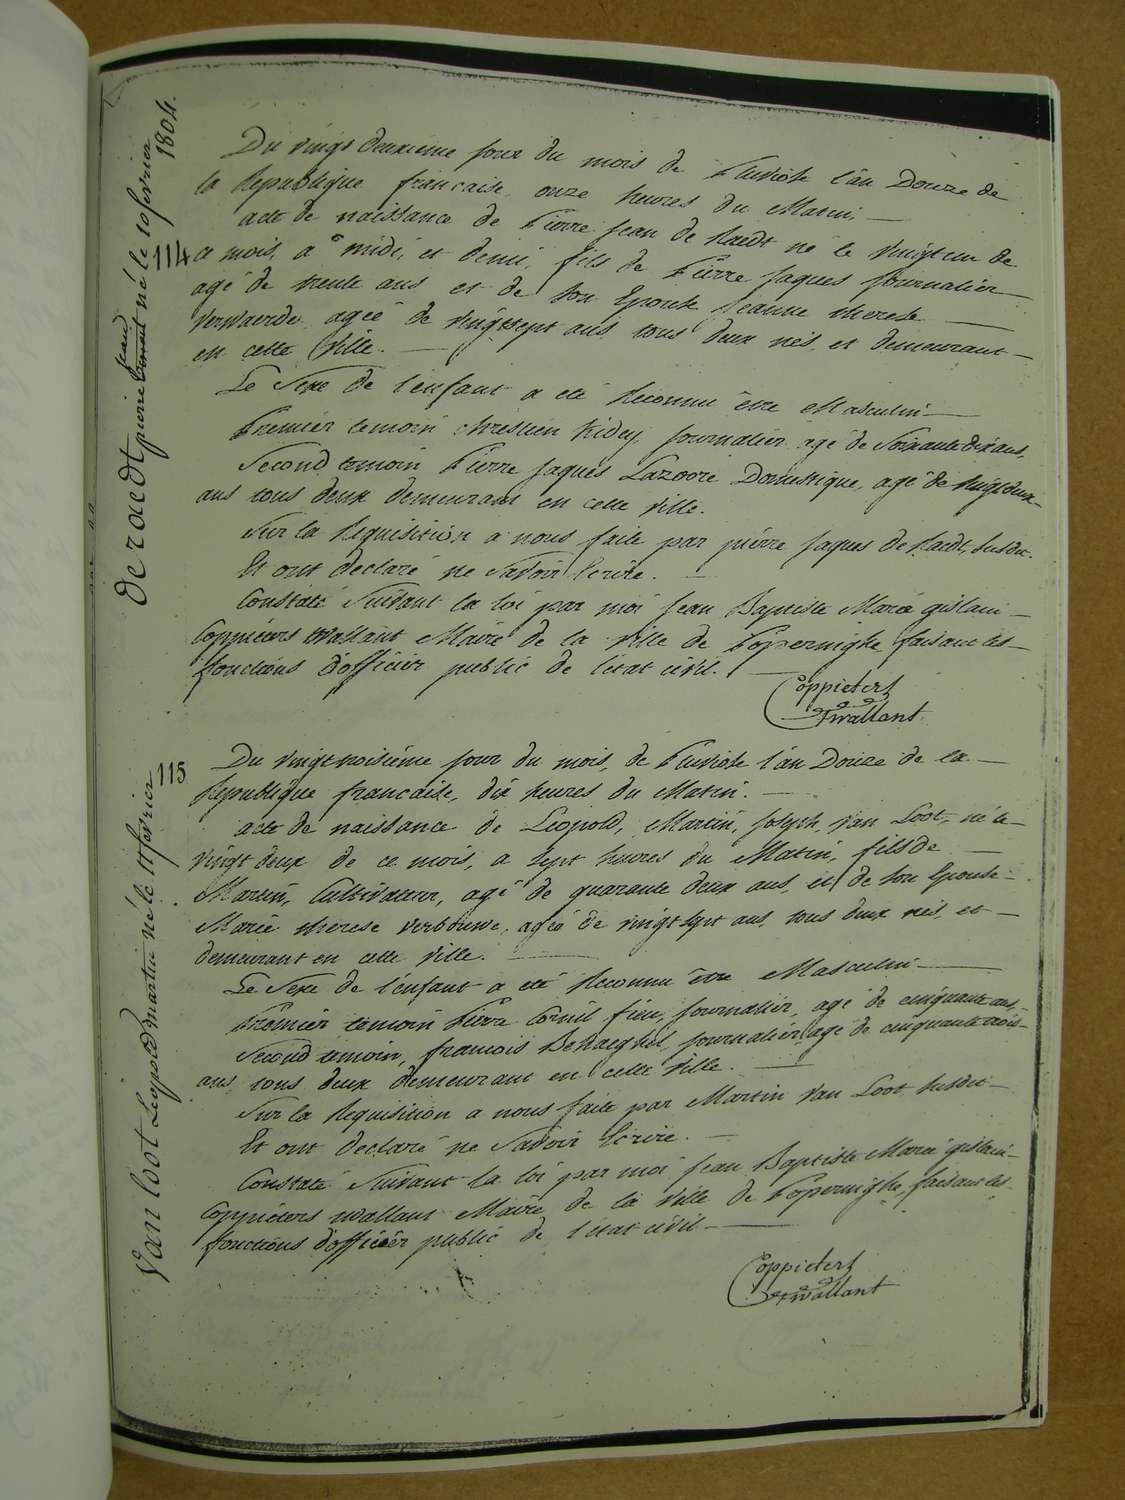 1804.
de raedt pierre jean né le 10 fevrier
114
Du vingt deuxieme jour du mois de Pluviose l'an Douze de
la Republique francaise, onze heures du Matin, —
acte de naissance de Pierre Jean de Raedt né le vingt un de
ce mois, a midi, et demi, fils de Pierre Jaques Journalier
agé de trente ans et de son Epouse Jeanne therese —
verwaerde agée de vingtsept ans tous deux nés et demeurant —
en cette Ville. —
Le Sexe de l'enfant a eté Reconnu être Masculin —
Premier temoin chretien Ridey, journalier agé de Soixante dix ans,
Second temoin Pierre Jaques Lazoore Domestique, agé de vingt deux -
ans tous deux demeurant en cette ville.
Sur la Requisition a nous faite par pierre Jaques de Raedt, susdit.
Et ont declaré ne Savoir Ecrire. —
Constaté Suivant la loi par moi Jean Baptiste Marie gislain —
Coppieters wallant Maire de la ville de Poperinghe faisant les —
fonctions d'officier public de l'etat civil. —
Coppieters
wallant
van loot Leopold martin né le 11 fevrier
115
Du vingttroisième jour du mois, de Pluviose l'an Douze de la —
Republique francaise, dix heures du Matin. —
acte de naissance de Liopold, Martin, Joseph, van Loot, né le —
vingt deux de ce mois, a sept heures du Matin, fils de —
Martin, Cultivateur, agé de quarante deux ans et de son Epouse —
Marie therese verbouwe, agée de vingt sept ans, tous deux nés, et —
demeurant en cette ville. —
Le Sexe de l'enfant a eté Reconnu être Masculin —
Premier temoin Pierre Cornil fieu, journalier, agé de cinquante ans -
Second temoin, francois Dehaeghel, journalier, agé de cinquante trois -
ans, tous deux demeurant en cette ville. —
Sur la Requisition a nous faite par Martin van Loot susdit —
Et ont declaré ne Savoir Ecrire. —
Constaté Suivant la loi par moi Jean Baptiste Marie gislain —
Coppieters wallant Maire de la ville de Poperinghe, faisant les —
fonctions d'officier public de l'état civil —
Coppieters
wallant